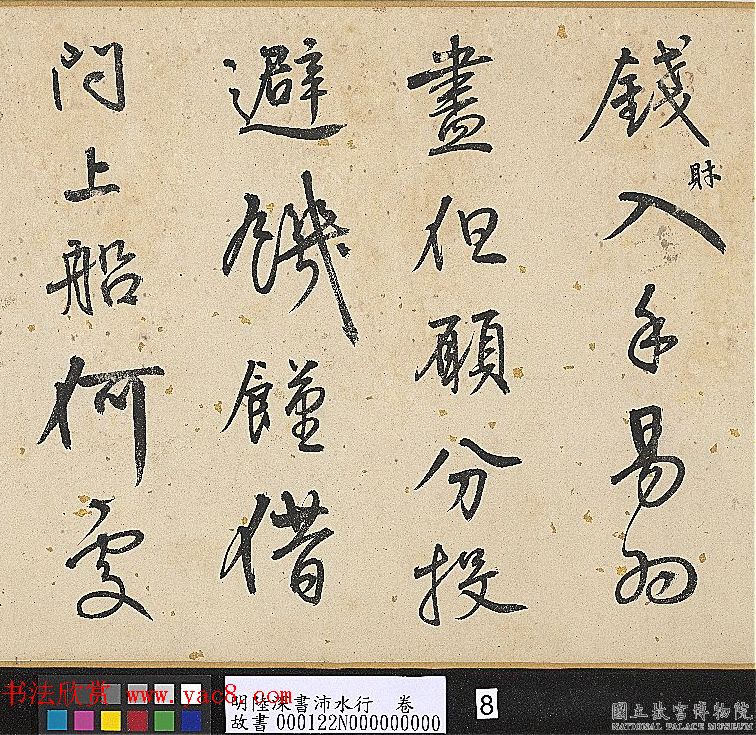 錢財入手易為
盡但願分投
避饑饉借
問上船何處
书法欣赏 www.yac8.com
明陸深書沛水行 卷
故書 000122N000000000
8
國立故宮博物院
NATIONAL PALACE MUSEUM